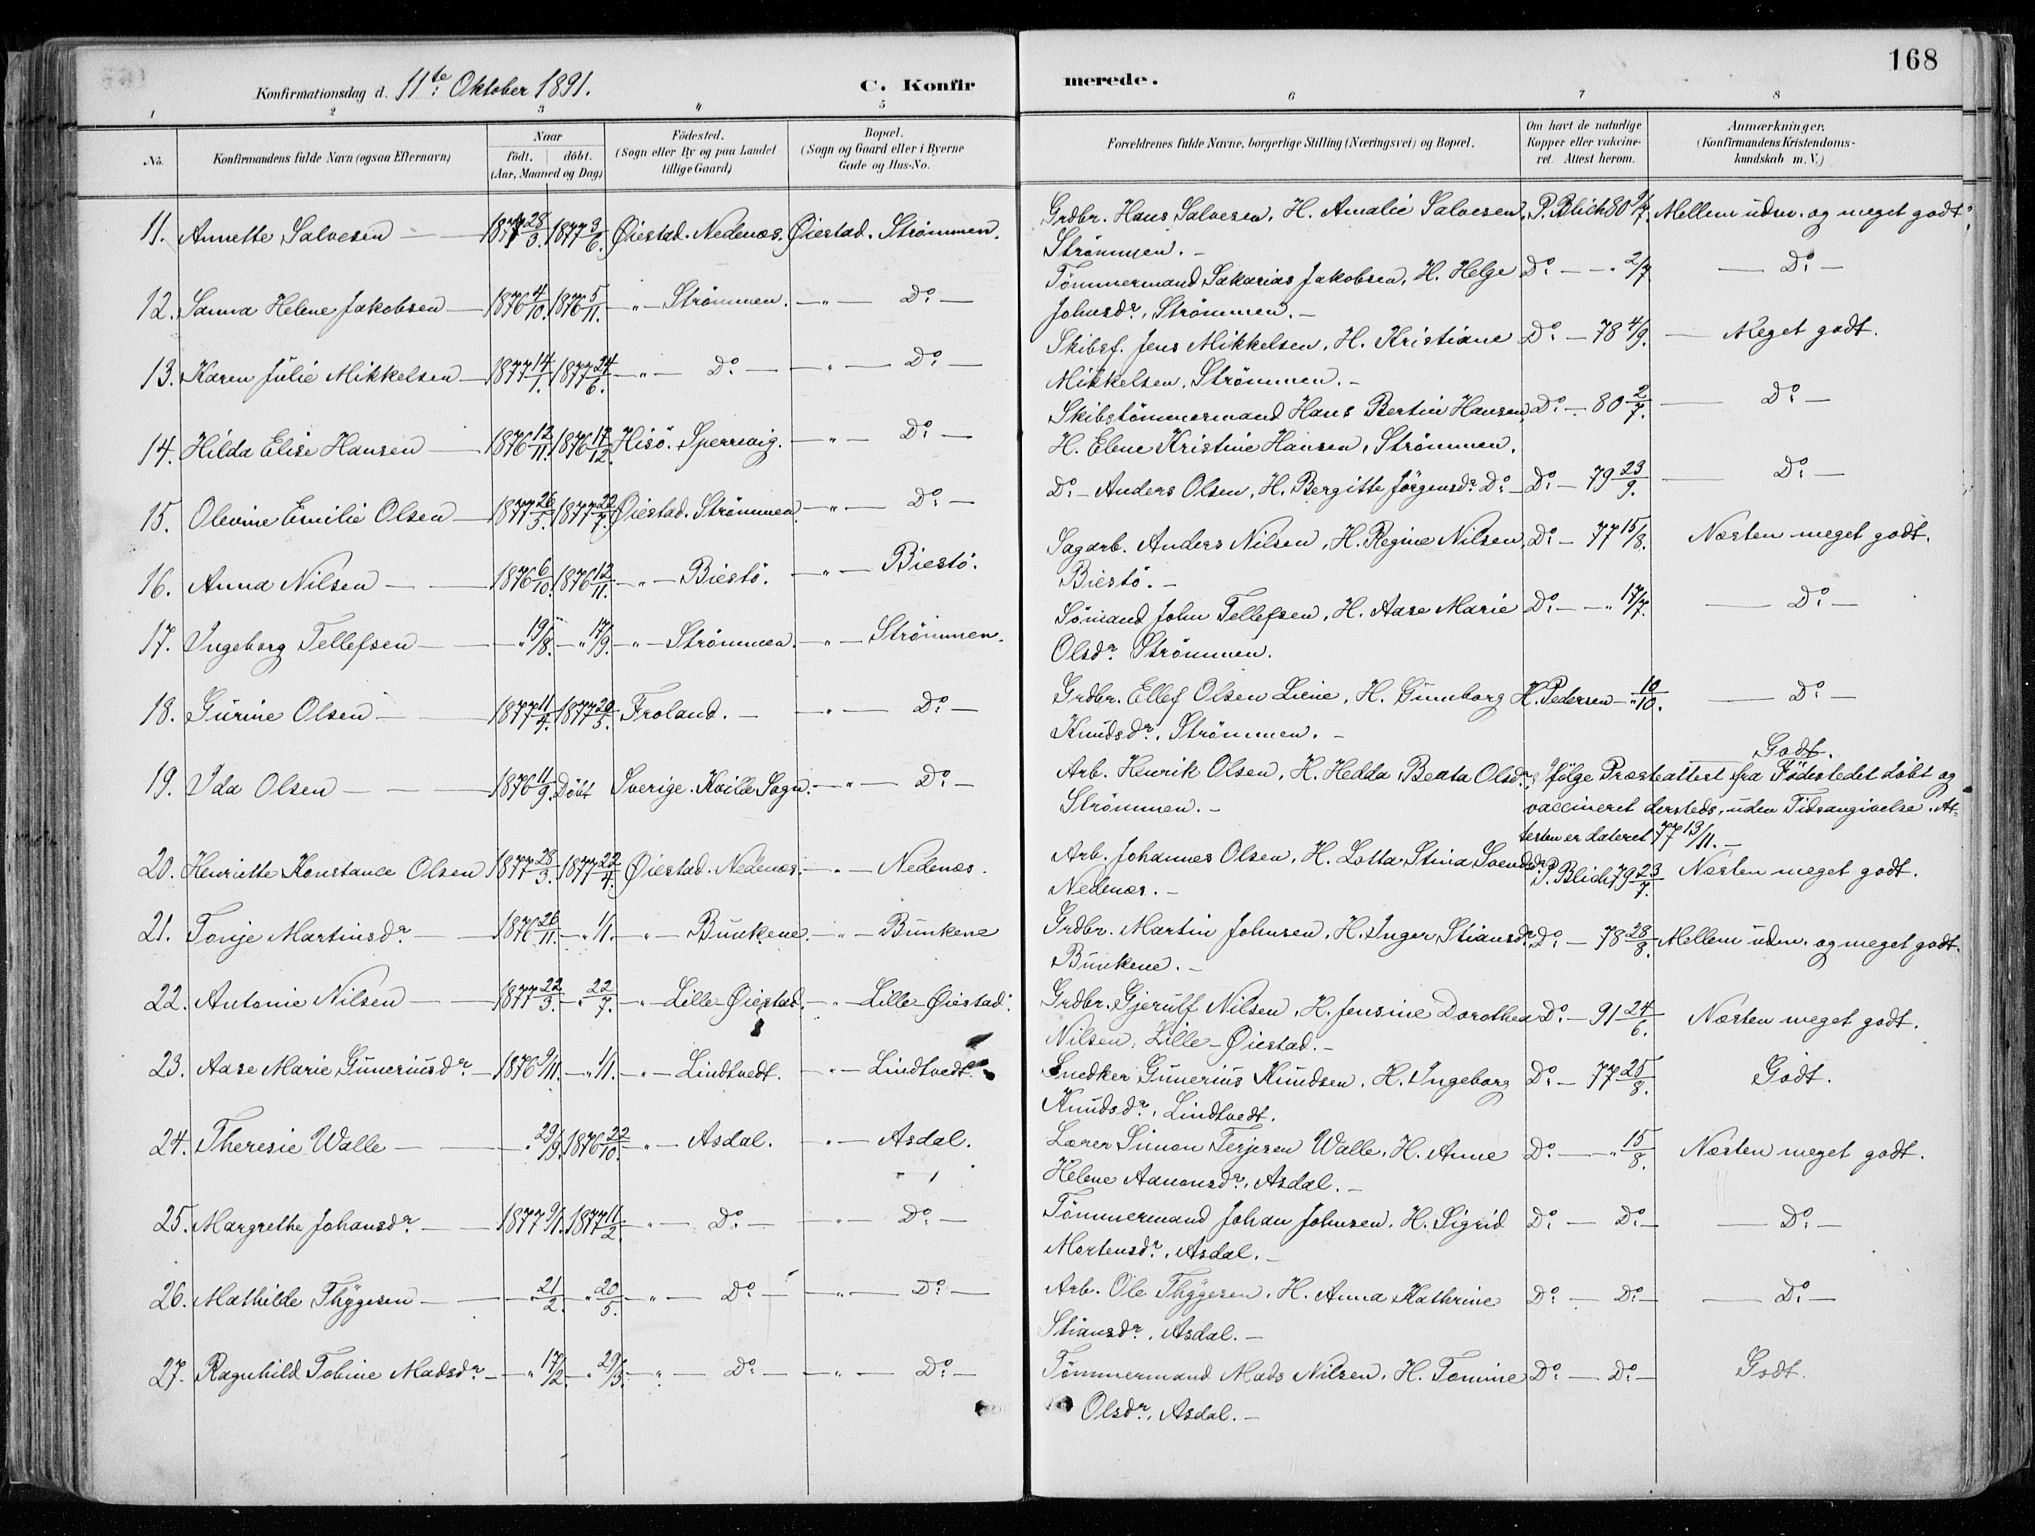 168
Konfirmationsdag d. 11te Oktober 1891. C. Konfir merede.
1 2 3 4 5 6 7 8
No. Konfirmandens fulde Navn (ogsaa Efternavn) Naar født. døbt. (Aar, Maaned og Dag) Fødested. (Sogn eller By og paa Landet tillige Gaard) Bopæl. (Sogn og Gaard eller i Byerne Gade og Hus-No. Forældrenes fulde Navne, borgerlige Stilling (Næringsvei) og Bopæl. Om havt de naturlige Kopper eller vakcineret. Attest herom. Anmærkninger, (Konfirmandens Kristendomskundskab m. V.)
11. Annette Salvesen — 1877 28/3. 1877 3/6. Øiestad. Nedenæs. Øiestad. Strømmen. Grdbr. Hans Salvesen, H. Amalie Salvesen, P. Blich 80 2/7. Mellem udm. og meget godt.
Strømmen. —
12. Sanna Helene Jakobsen — 1876 4/10. 1876 5/11. — " — Strømmen. — " — Do — Tømmermand Sakarias Jakobsen, H. Helge Do — " 2/7 — Do —
Johnsdr, Strømmen. —
13. Karen Julie Mikkelsen — 1877 14/1. 1877 24/6. — " — Do — — " — Do — Skibsf. Jens Mikkelsen, H. Kristiane Do — 78 4/9. — Meget godt.
Mikkelsen, Strømmen. —
14. Hilda Elise Hansen — 1876 12/11. 1876 17/12. Hisö. Sperrvig. — " — Do — Skibstømmermand Hans Bertin Hansen, Do — 80 2/7. — Do —
H. Elene Kristine Hansen, Strømmen.
15. Olevine Emilie Olsen — 1877 26/5. 1877 22/7. Øiestad. Strømmen. — " — Do — Do — Anders Olsen, H. Bergitte Jørgensdr Do — Do — 79 23/9. — Do —
16. Anna Nilsen — 1876 6/10. 1876 12/11. — " — Biestö. — " — Biestö. Sagarb. Anders Nilsen, H. Regine Nilsen, Do — 77 15/8. Næsten meget godt.
Biestö. —
17. Ingeborg Tellefsen — " 19/8. — " 17/9. — " — Strømmen. — " — Strømmen. Sømand John Tellefsen, H. Aase Marie Do — " 17/7. — Do —
Olsdr Strømmen.
18. Gurine Olsen — 1877 11/4. 1877 20/5. Froland. — — " — Do — Grdbr. Ellef Olsen Liene, H. Gunnborg H. Pedersen — " 10/10. — Do —
Knudsdr, Strømmen. —
Godt.
19. Ida Olsen — 1876 11/9. Døbt Sverige. Kville Sogn. — " — Do — Arb. Henrik Olsen, H. Hedda Beata Olsdr, Ifølge Præsteattest fra Fødestedet døbt og
Strømmen. — vaccineret dersteds, uden Tidsangivelse. At-
testen er dateret 77 13/11. —
20. Henriette Konstance Olsen 1877 28/3. 1877 22/4. Øiestad. Nedenæs. — " — Nedenæs. Arb. Johannes Olsen, H. Lotta Stina Svendsdr P. Blich 79 23/7. Næsten meget godt.
Nedenæs. —
21. Tonje Martinsdr — 1876 26/11. — " 1/1. — " — Bunkene. — " — Bunkene Grdbr. Martin Johnsen, H. Inger Stiansdr Do — 78 28/8. Mellem udm. og meget godt.
Bunkene. —
22. Antonie Nilsen — 1877 22/3. — " 22/7. — " — Lille-Øiestad. — " — Lille-Øiestad. Grdbr. Gjerulf Nilsen, H. Jensine Dorothea Do — 91 24/6. Næsten meget godt.
Nilsen, Lille-Øiestad. —
23. Aase Marie Guneriusdr — 1876 9/11. — " 1/1. — " — Lindtvedt. — " — Lindtvedt. Snedker Gunerius Knudsen, H. Ingeborg Do — 77 25/8. Godt.
Knudsdr, Lindtvedt.
24. Theresie Walle — " 29/9. 1876 22/10. " — Asdal. " — Asdal. Lærer Simon Terjesen Walle, H. Anne Do — " 15/8. Næsten meget godt.
Helene Aanonsdr, Asdal. —
25. Margrethe Johansdr — 1877 9/1. 1877 11/2. — " — Do — — " — Do — Tømmermand Johan Johnsen, H. Sigrid Do — Do — — Do —
Mortensdr, Asdal. —
26. Mathilde Thygesen — " 21/2. — " 20/5. — " — Do — — " — Do — Arb. Ole Thygesen, H. Anna Kathrine Do — Do — — Do —
Stiansdr, Asdal. —
27. Ragnhild Tobine Madsdr — " 17/2. — " 29/3. — " — Do — — " — Do — Tømmermand Mads Nilsen, H. Tomine Do — Do — Godt.
Olsdr, Asdal. —